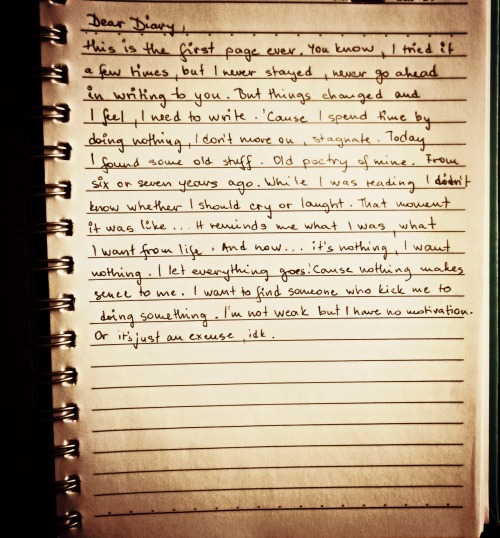 Dear Diary,
this is the first page ever. You know, I tried it
a few times, but I never stayed, never go ahead
in writing to you. But things changed and
I feel, I need to write. 'Cause I spend time by
doing nothing, I don't move on, stagnate. Today
I found some old stuff. Old poetry of mine. From
six or seven years ago. While I was reading I didn't
know whether I should cry or laught. That moment
it was like... It reminds me what I was, what
I want from life. And now... it's nothing, I want
nothing. I let everything goes. 'Cause nothing makes
sence to me. I want to find someone who kick me to
doing something. I'm not weak but I have no motivation.
Or it's just an excuse, idk.